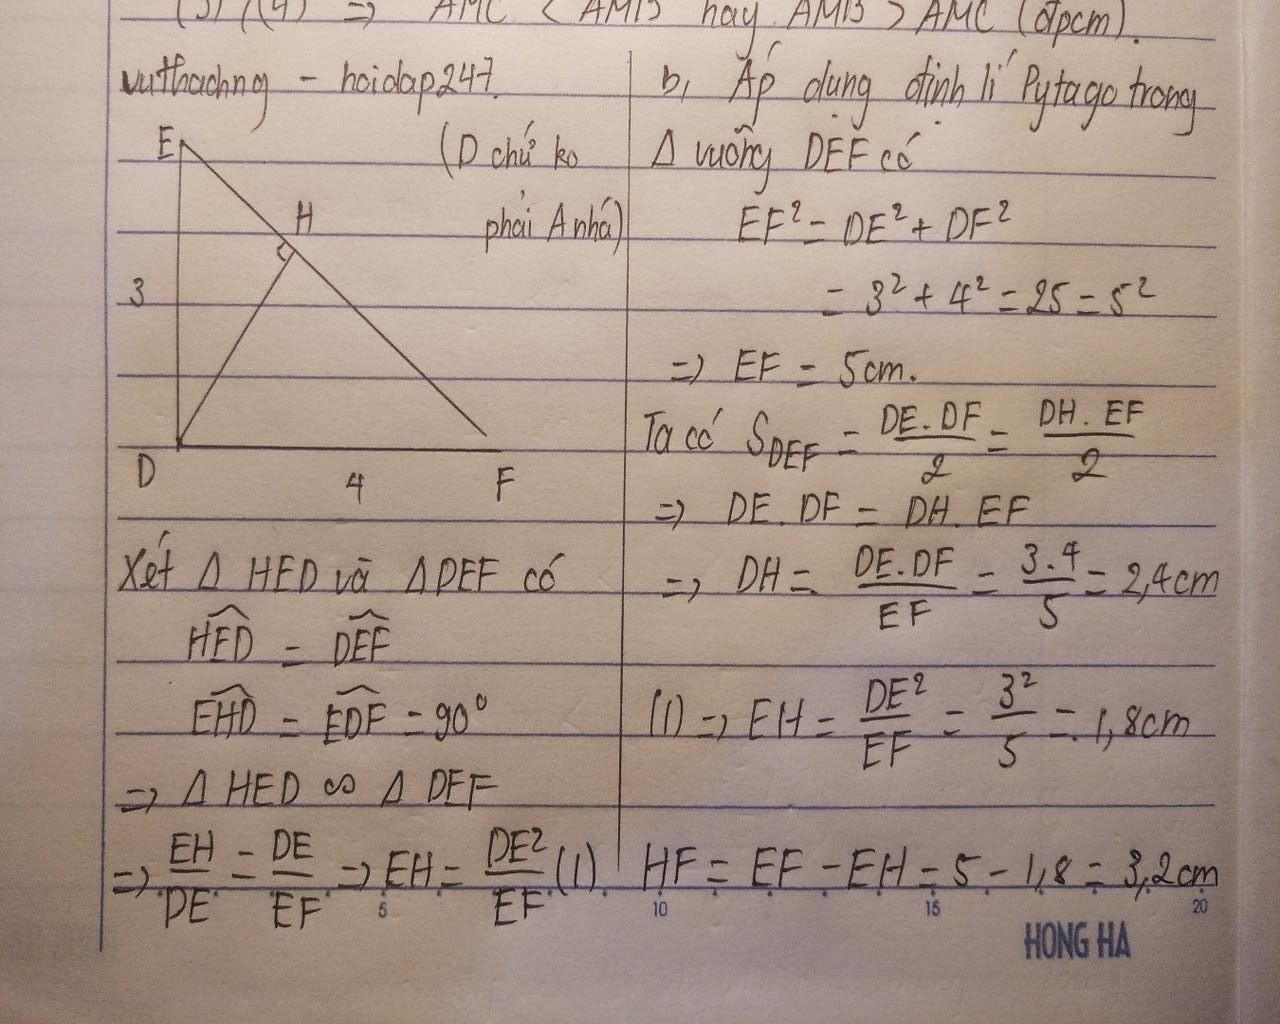 (3), (4) => AMC < AMB hay AMB > AMC (đpcm).
vuthachng - hoidap247.
E
(D chứ ko
H
phải A nhá)
3
D
4
F
Xét Δ HED và Δ DEF có
HED = DEF
EHD = EDF = 90°
=> Δ HED ∽ Δ DEF
=> EH/DE = DE/EF => EH = DE²/EF (1)
b, Áp dụng định lí Pytago trong
Δ vuông DEF có
EF² = DE² + DF²
= 3² + 4² = 25 = 5²
=> EF = 5cm.
Ta có S_DEF = DE.DF/2 = DH.EF/2
=> DE.DF = DH.EF
=> DH = DE.DF/EF = 3.4/5 = 2,4cm
(1) => EH = DE²/EF = 3²/5 = 1,8cm
HF = EF - EH = 5 - 1,8 = 3,2cm
5 10 15 20
HONG HA